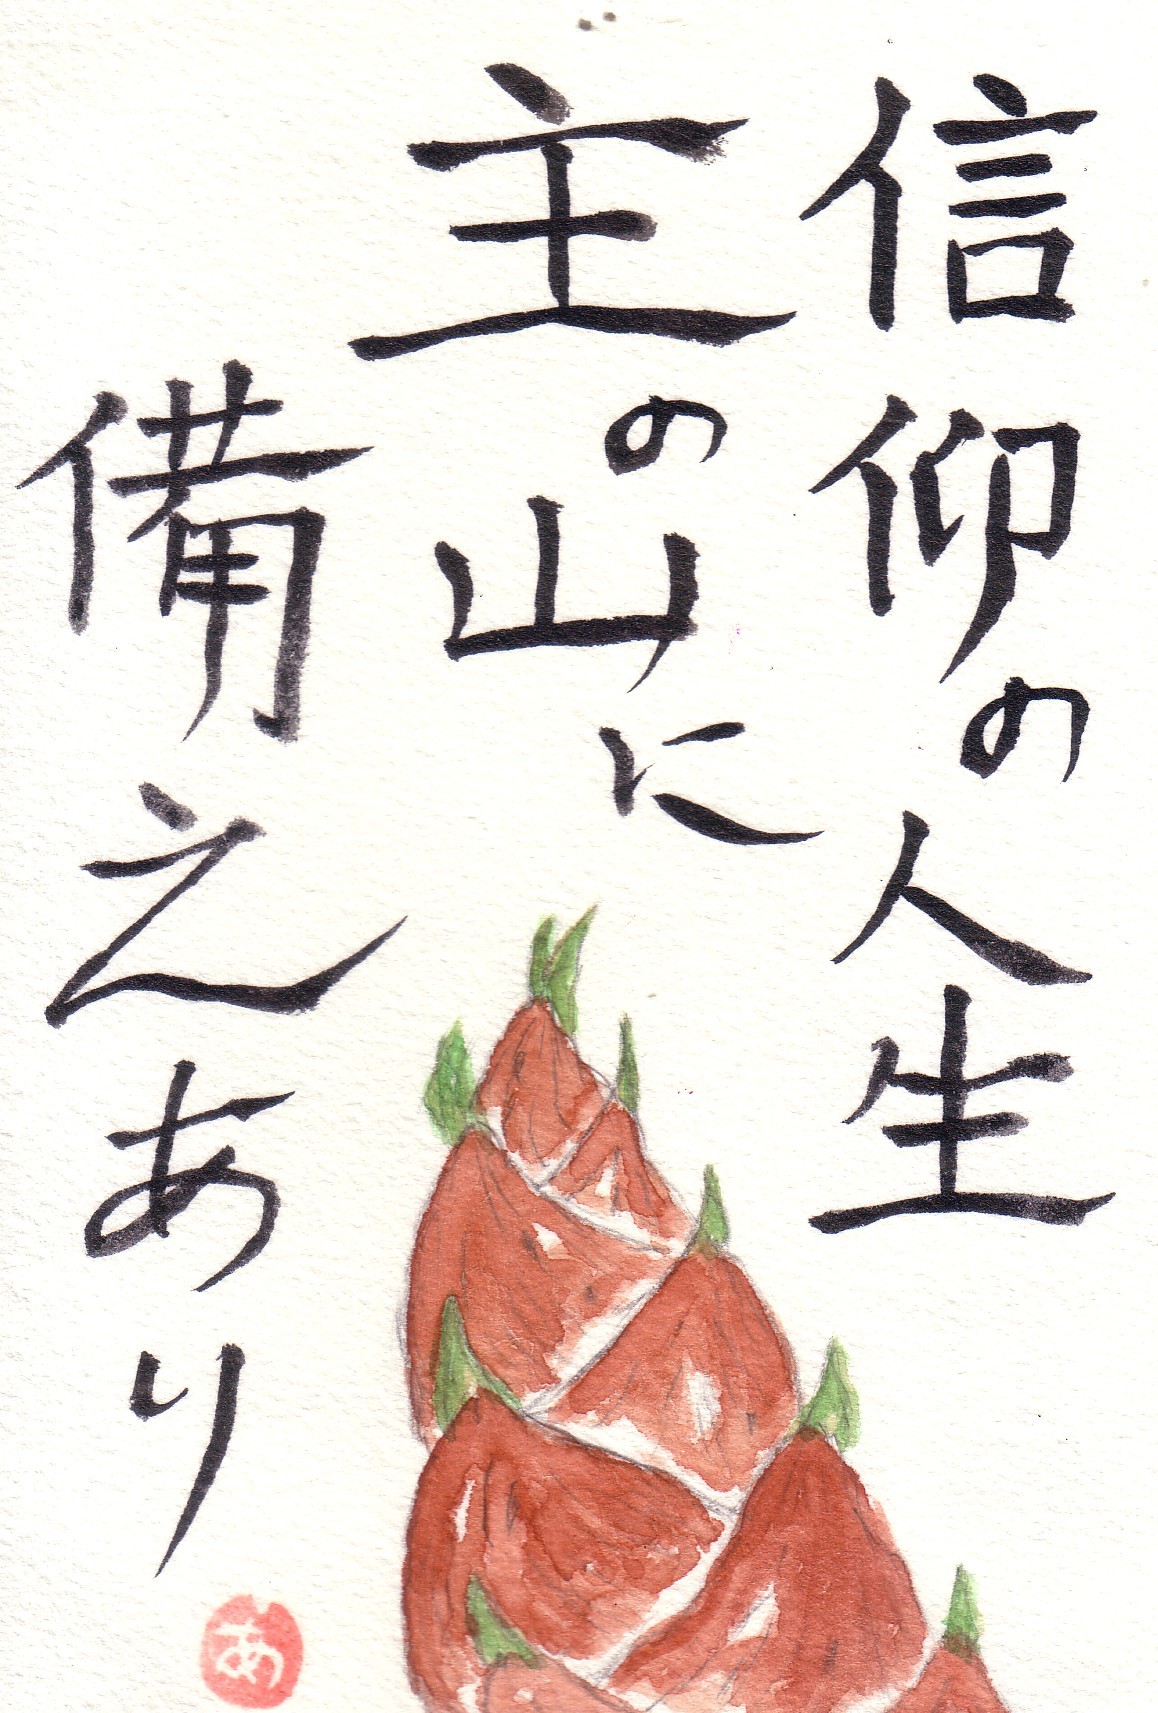 信仰の人生
主の山に
備えあり
あ